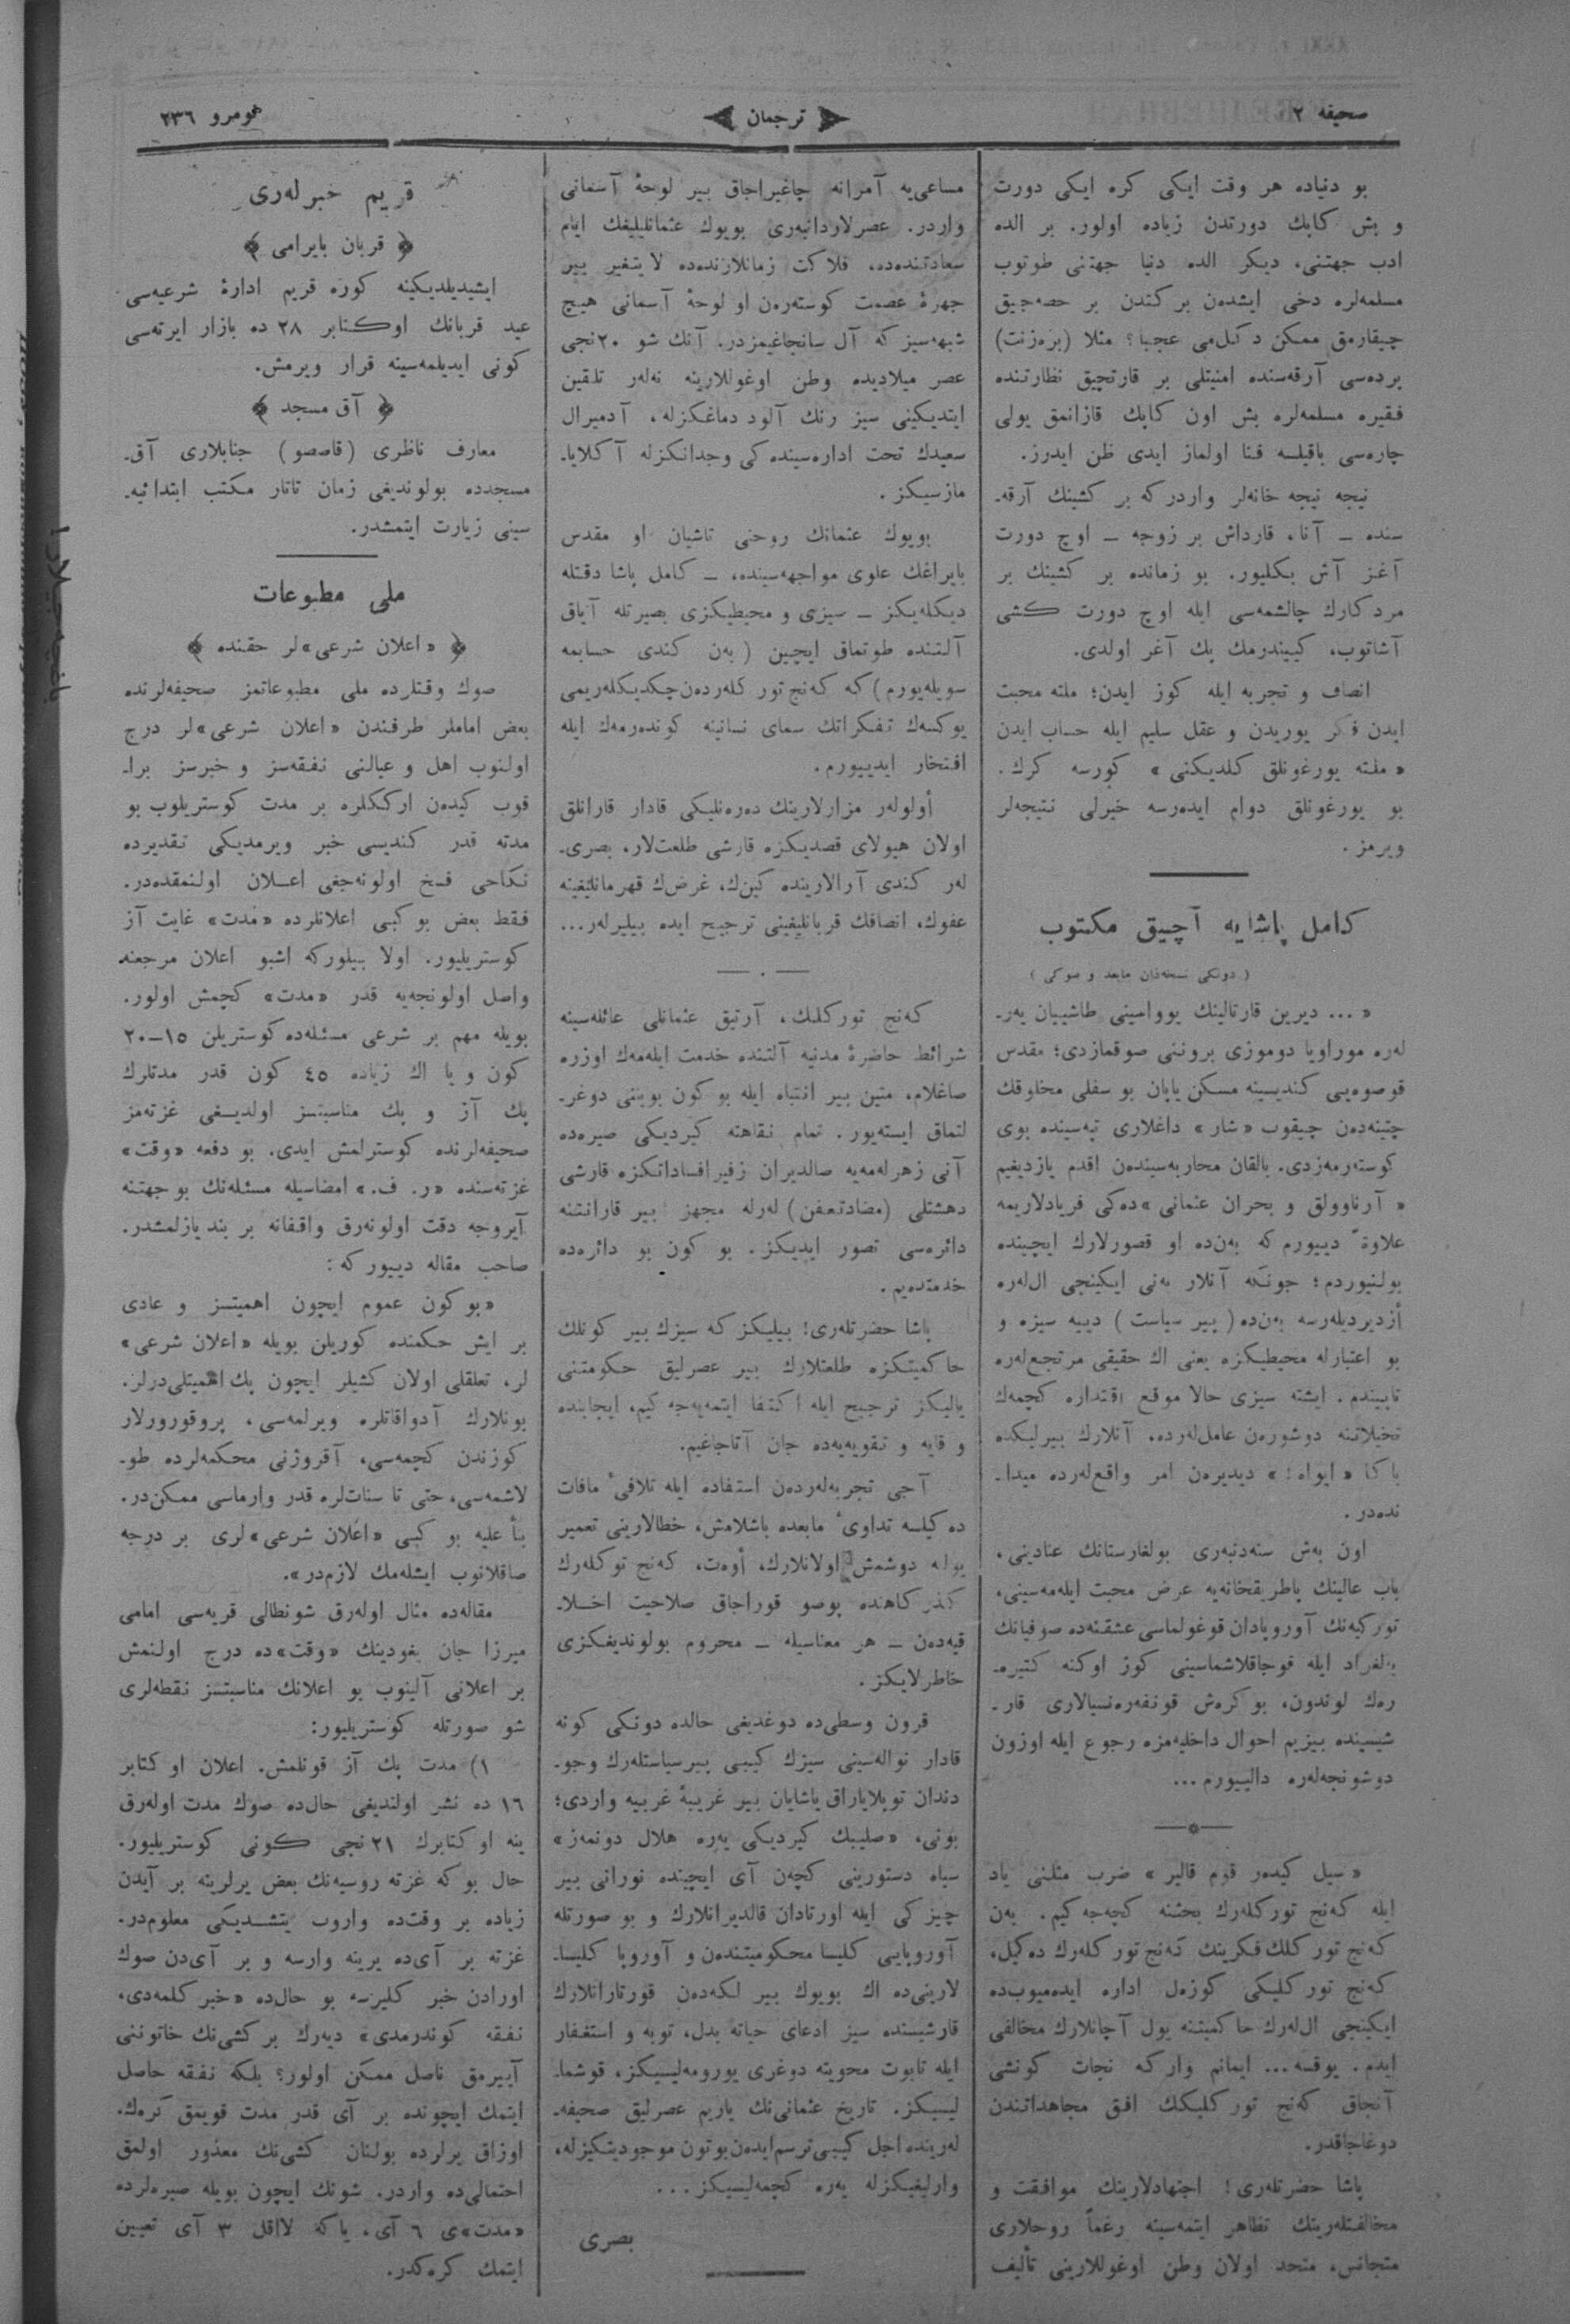 صحیفه ٢
ترجمان
نومرو ٢٣٦
بو دنیاده هر وقت ایکی کره ایکی دورت
و بش کاپك دورتدن زیاده اولور. بر الده
ادب جهتنی، دیکر الده دنیا جهتنی طوتوب
مسلمه‌لره دخی ایشدەن بر کندن بر حصه‌جیق
چیقارمق ممکن دکل‌می عجبا؟ مثلا (بره‌زنت)
پرده‌سی آرقه‌سنده امنیتلی بر قارتچیق نظارتنده
فقیره مسلمه‌لره بش اون کاپك قازانمق یولی
چاره‌سی باقیلسه فنا اولماز ایدی ظن ایدرز.
نیجه نیجه خانه‌لر واردرکه بر کشینك آرقه‌ـ
سنده ـ آنا، قارداش بر زوجه ـ اوچ دورت
آغز آش بکلیور. بو زمانده بر کشینك بر
مردکارك چالشمه‌سی ایله اوچ دورت کشی
آشاتوب، کییندرمك پك آغر اولدی.
انصاف و تجربه ایله کوز ایدن؛ ملته محبت
ایدن فکر یوریدن و عقل سلیم ایله حساب ایدن
«ملته یورغونلق کلدیکنی» کورسه کرك.
بو یورغونلق دوام ایدەرسه خیرلی نتیجه‌لر
ویرمز.
کامل پاشایه آچیق مکتوب
(دونکی نسخه‌دان مابعد و صوکی)
«... دیرین قارتالینك یوواسینی طاشییان یەرـ
لەره موراویا دوموزی بروننی صوقمازدی؛ مقدس
قوصوەیی کندیسینه مسکن یاپان بو سفلی مخلوقك
چتینەدەن چیقوب «شار» داغلاری تپه‌سینده بوی
کوستەرمەزدی. بالقان محاربه‌سیندەن اقدم یازدیغیم
«آرناوولق و بحران عثمانی» دەکی فریادلاریمه
علاوةً دییورم که بەن‌ده او قصورلارك ایچینده
بولنیوردم؛ چونکه آنلار بەنی ایکینجی ال‌لەره
أزدیردیلەرسه بەن‌ده (پیر سیاست) دییه سیزه و
بو اعتبارله محیطیکزه یعنی اك حقیقی مرتجع‌لەره
تاپیندم. ایشته سیزی حالا موقع اقتداره کچمەك
تخیلاتنه دوشورەن عامل‌لەرده، آنلارك بیرلیکده
باکا «ایواه!» دیدیرەن امر واقع‌لەرده میداـ
نده‌در.
اون بەش سنه‌دنبەری بولغارستانك عنادینی،
باب عالینك پاطریقخانه‌یه عرض محبت ایله‌مەسینی،
تورکیه‌نك آوروپادان قوغولماسی عشقنه‌ده صوفیانك
بلغراد ایله قوجاقلاشماسینی کوز اوکنه کتیرەـ
رەك لوندون، بوکرەش قونفەرەنسیالاری قارـ
شیسینده بیزیم احوال داخلیه‌مزه رجوع ایله اوزون
دوشونجه‌لەره دالییورم...
«سیل کیدەر قوم قالیر» ضرب مثلنی یاد
ایله کەنج تورکلەرك بحثنه کچەجەکیم. بەن
کەنج تورکلك فکرینك کەنج تورکلەرك دەکیل،
کەنج تورکلیکی کوزەل اداره ایده‌میوب‌ده
ایکینجی ال‌لەرك حاکمیتنه یول آچانلارك مخالفی
ایدم. یوقسه... ایمانم وارکه نجات کونشی
آنجاق کەنج تورکلیکك افق مجاهداتندن
دوغاجاقدر.
پاشا حضرتلەری! اجتهادلارینك موافقت و
مخالفتلەرینك تظاهر ایتمه‌سینه رغماً روحلاری
متجانس، متحد اولان وطن اوغوللارینی تألیف
مساعی‌یه آمرانه چاغیراجاق بیر لوحهٔ آسمانی
واردر. عصرلاردانبەری بویوك عثمانلیلیغك ایام
سعادتنده‌ده، فلاکت زمانلارنده‌ده لایتغیر بیر
چهرهٔ عصمت کوستەرەن او لوحهٔ آسمانی هیچ
شبهه‌سیز که آل سانجاغیمزدر. آنك شو ٢٠نجی
عصر میلادیده وطن اوغوللارینه نەلەر تلقین
ایتدیکینی سیز رنك آلود دماغکزله، آدمیرال
سعیدك تحت اداره‌سینده‌کی وجدانکزله آکلایاـ
مازسیکز.
بویوك عثمانك روحنی تاشیان او مقدس
بایراغك علوی مواجهه‌سینده، ـ کامل پاشا دقتله
دیکله‌یکز ـ سیزی و محیطیکزی بصیرتله آیاق
آلتنده طوتماق ایچین (بەن کندی حسابمه
سویلەیورم) که کەنج تورکلەردەن چکدیکلەریمی
یوکسەك تفکراتك سمای نسانینه کوندەرمەك ایله
افتخار ایدییورم.
أولولەر مزارلارینك دەرەنلیکی قادار قارانلق
اولان هیولای قصدیکزه قارشی طلعت‌لار، بصری‌ـ
لەر کندی آرالارینده کین‌ك، غرض‌ك قهرمانلیغینه
عفوك، انصافك قربانلیغینی ترجیح ایده بیلیرلەر...
کەنج تورکلك، آرتیق عثمانلی عائله‌سینه
شرائط حاضرهٔ مدنیه آلتنده خدمت ایله‌مەك اوزره
صاغلام، متین بیر انتباه ایله بوکون بویننی دوغرـ
لتماق ایسته‌یور. تمام نقاهته کیردیکی صیره‌ده
آنی زهرله‌مه‌یه صالدیران زفیر افساداتکزه قارشی
دهشتلی (مضادتعفن) لەرله مجهز بیر قارانتنه
دائره‌سی تصور ایدیکز. بو کون بو دائره‌ده
خدمتده‌یم.
پاشا حضرتلەری! بیلیکز که سیزك بیر کونلك
حاکمیتکزه طلعتلارك بیر عصرلیق حکومتنی
یالیکز ترجیح ایله اکتفا ایتمه‌یەجەکیم، ایجابنده
وقایه و تقویه‌یه‌ده جان آتاجاغیم.
آجی تجربه‌لەردەن استفاده ایله تلافیٔ مافات
دەکیلسه تداویٔ مابعده باشلامش، خطالارینی تعمیر
یولنه دوشمش اولانلارك، أوەت، کەنج تورکلەرك
کذرکاهنده پوصو قوراجاق صلاحیت اخلاـ
قیه‌دەن ـ هر معناسیله ـ محروم بولوندیغکزی
خاطرلایکز.
قرون وسطی‌ده دوغدیغی حالده دونکی کونه
قادار نواله‌سینی سیزك کیبی پیرسیاستلەرك وجوـ
دندان توپلایاراق یاشایان بیر غریبهٔ غربیه واردی؛
بونی، «صلیبك کیردیکی یەره هلال دونمەز»
سیاه دستورینی کچەن آی ایچینده نورانی بیر
چیزکی ایله اورتادان قالدیرانلارك و بو صورتله
آوروپایی کلیسا محکومیتندەن و آوروپا کلیساـ
لارینی‌ده اك بویوك بیر لکه‌دەن قورتارانلارك
قارشیسنده سیز ادعای حیاته بدل، توبه و استغفار
ایله تابوت محویته دوغری یورومه‌لیسیکز، قوشماـ
لیسیکز. تاریخ عثمانی‌نك یاریم عصرلیق صحیفه‌ـ
لەرینده اجل کیبی ترسم ایدەن بوتون موجودیتکیزله،
وارلیغیکزله یەره کچمه‌لیسیکز...
بصری
قریم خبرلەری
﴿ قربان بایرامی ﴾
ایشیدیلدیکینه کوره قریم ادارهٔ شرعیه‌سی
عید قربانك اوکتابر ٢٨ ده بازار ایرته‌سی
کونی ایدیلمه‌سینه قرار ویرمش.
﴿ آق مسجد ﴾
معارف ناظری (قاصصو) جنابلاری آق‌ـ
مسجدده بولوندیغی زمان تاتار مکتب ابتدائیه‌ـ
سینی زیارت ایتمشدر.
ملی مطبوعات
﴿ «اعلان شرعی» لر حقنده ﴾
صوك وقتلرده ملی مطبوعاتمز صحیفه‌لرنده
بعض اماملر طرفندن «اعلان شرعی» لر درج
اولنوب اهل و عیالنی نفقه‌سز و خبرسز براـ
قوب کیدەن ارککلره بر مدت کوستریلوب بو
مدته قدر کندیسی خبر ویرمدیکی تقدیرده
نکاحی فسخ اولونه‌جغی اعلان اولنمقده‌در.
فقط بعض بو کبی اعلانلرده «مدت» غایت آز
کوستریلیور. اولا بیلورکه اشبو اعلان مرجعنه
واصل اولونجه‌یه قدر «مدت» کچمش اولور.
بویله مهم بر شرعی مسئله‌ده کوستریلن ١٥ـ٢٠
کون و یا اك زیاده ٤٥ کون قدر مدتلرك
پك آز و پك مناسبتسز اولدیغی غزته‌مز
صحیفه‌لرنده کوسترلمش ایدی. بو دفعه «وقت»
غزته‌سنده «ر. ف.» امضاسیله مسئله‌نك بو جهتنه
آیروجه دقت اولونه‌رق واقفانه بر بند یازلمشدر.
صاحب مقاله دییور که:
«بو کون عموم ایچون اهمیتسز و عادی
بر ایش حکمنده کوریلن بویله «اعلان شرعی»
لر، تعلقلی اولان کشیلر ایچون پك اهمیتلی‌درلر.
بونلارك آدواقاتلره ویرلمه‌سی، پروقورورلار
کوزندن کچمه‌سی، آقروژنی محکمه‌لرده طوـ
لاشمه‌سی، حتی تا سنات‌لره قدر وارماسی ممکن‌در.
بنأ علیه بو کبی «اعلان شرعی» لری بر درجه
صاقلانوب ایشله‌مك لازم‌در».
مقاله‌ده مثال اوله‌رق شونطالی قریه‌سی امامی
میرزا جان یغودینك «وقت» ده درج اولنمش
بر اعلانی آلینوب بو اعلانك مناسبتسز نقطه‌لری
شو صورتله کوستریلیور:
١) مدت پك آز قونلمش. اعلان اوکتابر
١٦ ده نشر اولندیغی حالده صوك مدت اوله‌رق
ینه اوکتابرك ٢١ نجی کونی کوستریلیور.
حال بوکه غزته روسیه‌نك بعض یرلرینه بر آیدن
زیاده بر وقتده واروب یتشدیکی معلوم‌در.
غزته بر آی‌ده یرینه وارسه و بر آی‌دن صوك
اورادن خبر کلیرسه بو حال‌ده «خبر کلمه‌دی،
نفقه کوندرمدی» دیەرك بر کشی‌نك خاتوننی
آییرمق ناصل ممکن اولور؟ بلکه نفقه حاصل
ایتمك ایچونده بر آی قدر مدت قویمق کرەك.
اوزاق یرلرده بولنان کشی‌نك معذور اولمق
احتمالی‌ده واردر. شونك ایچون بویله صیره‌لرده
«مدت» ی ٦ آی، یاکه لااقل ٣ آی تعیین
ایتمك کره‌کدر.